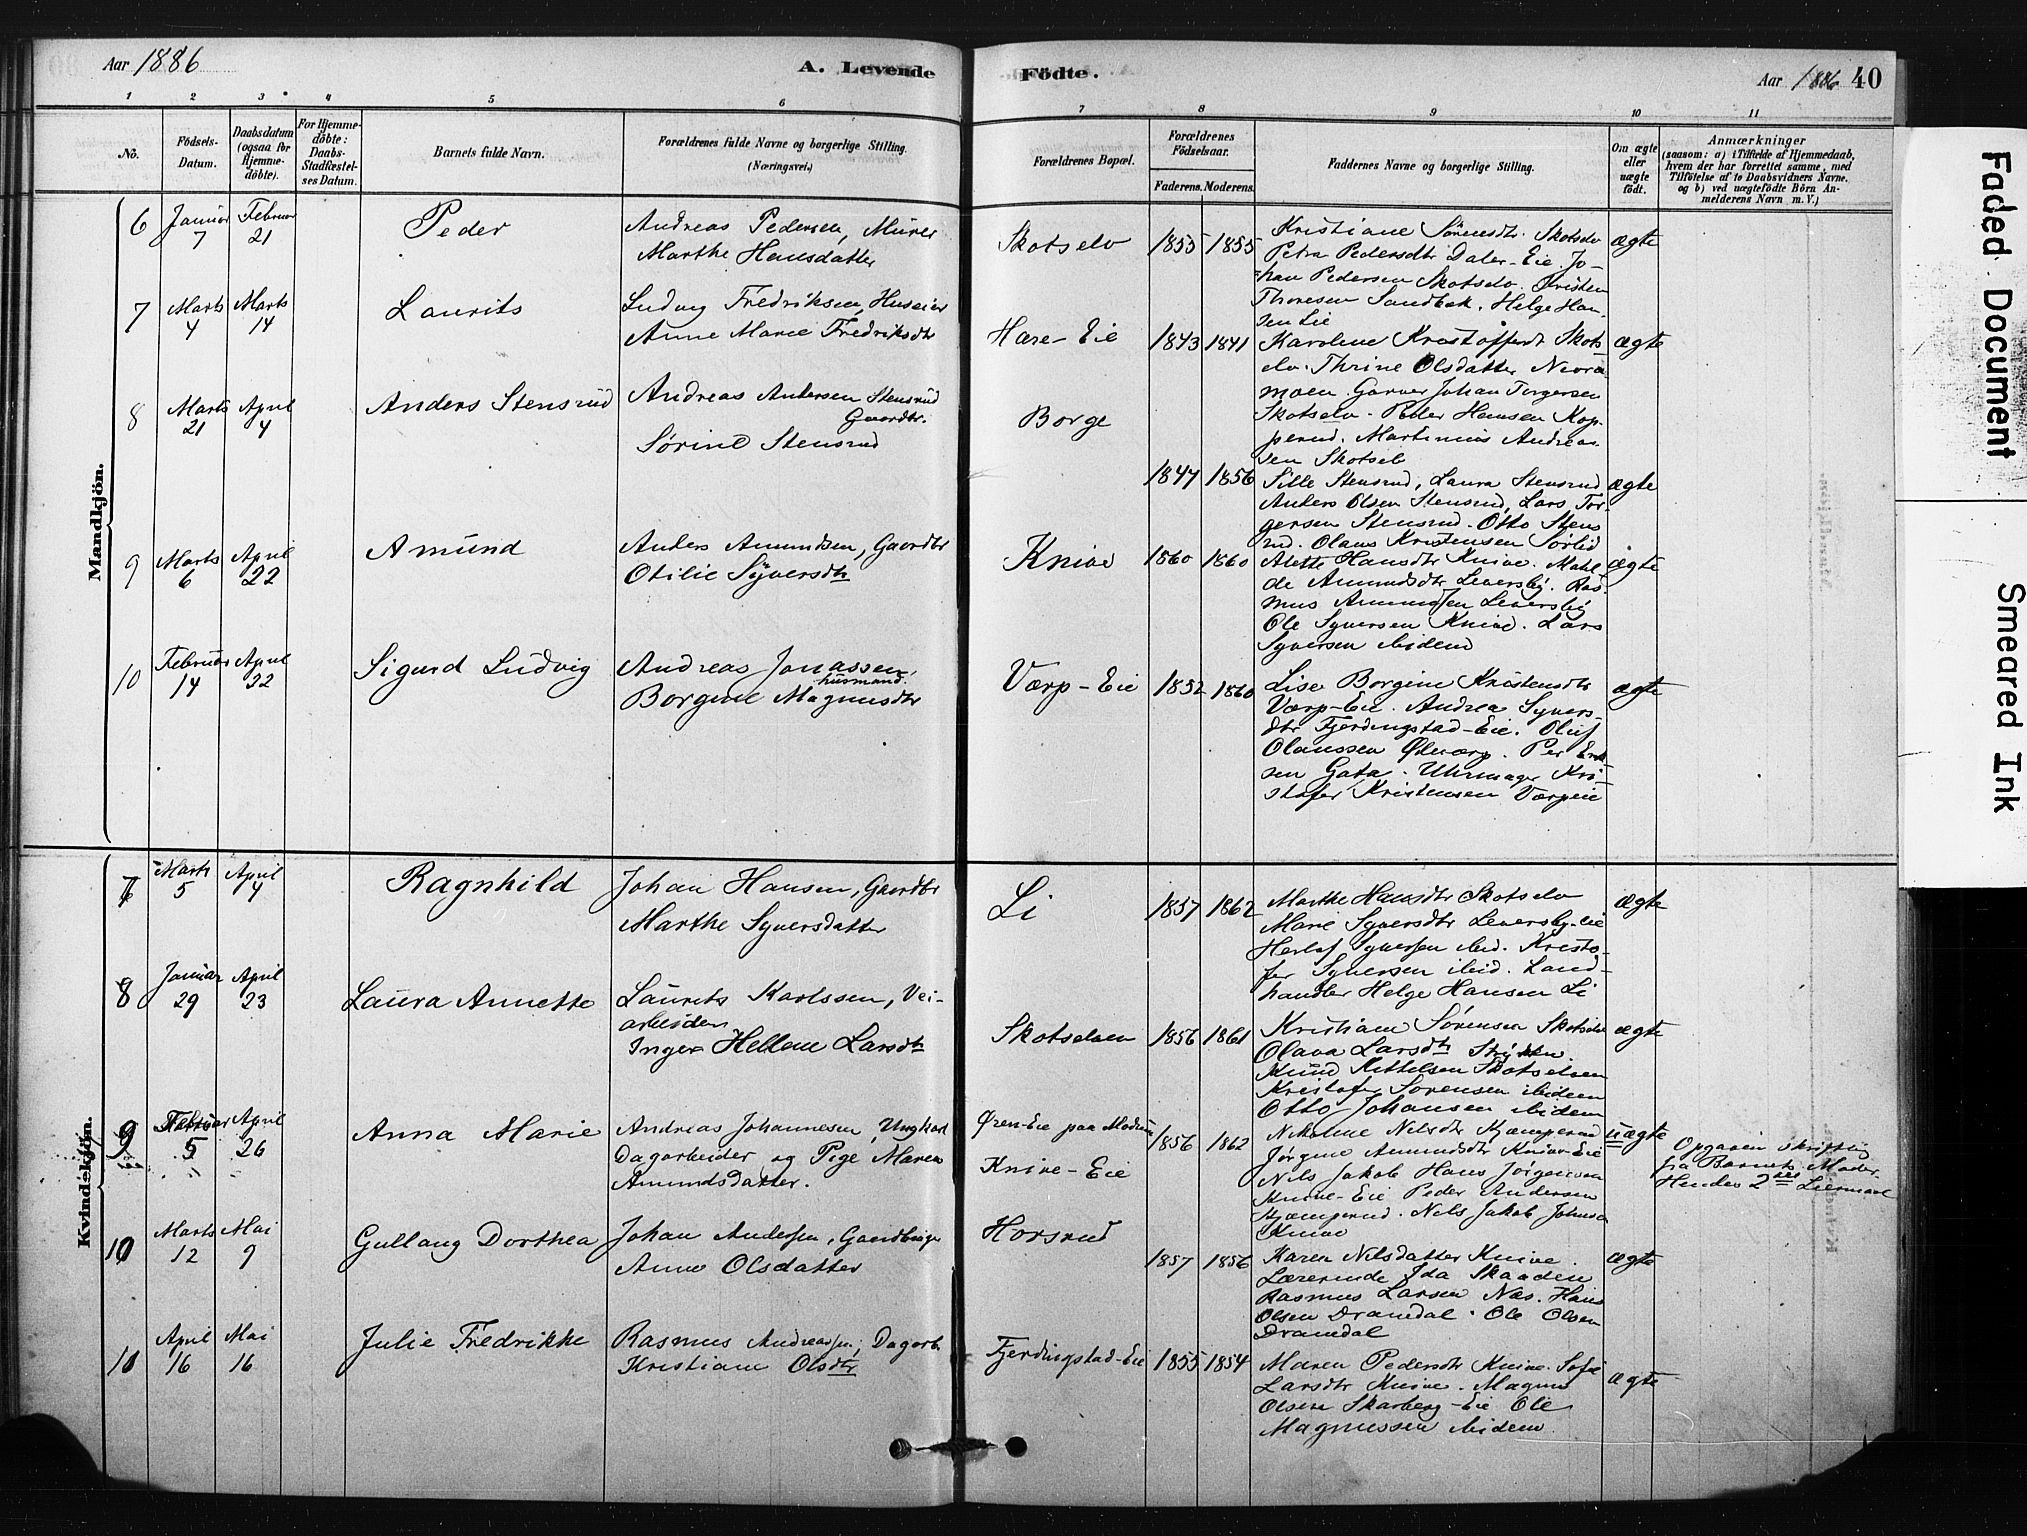 Aar 1886
A. Levende
Födte.
Aar 1886 40
1 2 3 4 5 6 7 8 9 10 11
No.
Födsels-Datum.
Daabsdatum (ogsaa for Hjemme-döbte).
For Hjemme-döbte: Daabs-Stadfæstel-ses Datum.
Barnets fulde Navn.
Forældrenes fulde Navne og borgerlige Stilling. (Næringsvei.)
Forældrenes Bopæl.
Forældrenes Födselsaar.
Faderens. Moderens.
Faddernes Navne og borgerlige Stilling.
Om ægte eller uægte födt.
Anmærkninger
(saasom: a) i Tilfælde af Hjemmedaab,
hvem der har forrettet samme, med
Tilföielse af to Daabsvidners Navne,
og b) ved uægtefödte Börn An-
melderens Navn m. V.)
Mandkjön.
6 Januar 7 Februar 21 Peder
Andreas Pedersen, Murer
Marthe Hansdatter
Skotselv 1855 1855
Kristiane Sørensdtr. Skotselv
Petra Pedersdtr Daler-Eie. Jo-
han Pedersen Skotselv. Kristen
Thoresen Sandbek. Helge Han-
sen Lie
ægte
7 Marts 4 Marts 14 Laurits
Ludvig Fredriksen, Huseier
Anne Marie Fredriksdtr
Hære-Eie 1843 1841
Karoline Kristoffersdt Skots-
elv. Thrine Olsdatter Nora-
moen. Garver Johan Torgersen
Skotselv. Peder Hansen Kop-
perud. Martinius Andrea-
sen Skotselv
ægte
8 Marts 21 April 4 Anders Stensrud
Andreas Andersen Stensrud
Gaardbr.
Sørine Stensrud
Borge 1847 1856
Sille Stensrud, Laura Stensrud
Anders Olsen Stensrud, Lars Tor-
gersen Stensrud. Otto Stens-
rud. Olaus Kristensen Sørlid
ægte
9 Marts 6 April 22 Amund
Anders Amundsen, Gaardbr
Otilie Syversdtr
Knive 1860 1860
Alette Hansdtr Knive. Mathil-
de Amundsdtr Leversby. Ras-
mus Amundsen Leversby
Ole Syversen Knive. Lars
Syversen ibidem
ægte
10 Februar 14 April 22 Sigurd Ludvig
Andreas Jonassen,
husmand.
Borgine Magnusdtr
Værp-Eie 1852 1860
Lise Borgine Kristensdtr
Værp-Eie. Andrea Syvers-
dtr Fjerdingstad-Eie. Oluf
Olaussen Øvværp. Per Erik-
sen Gata. Uhrmager Kri-
stofer Kristensen Værpeie
ægte
Kvindekjön.
7 Marts 5 April 4 Ragnhild
Johan Hansen, Gaardbr
Marthe Syversdatter
Li 1857 1862
Marthe Hansdtr Skotselv
Marie Syversdtr Leversby-Eie
Herlof Syversen ibid. Kristo-
fer Syversen ibid. Land-
handler Helge Hansen Li
ægte
8 Januar 29 April 23 Laura Annette
Laurits Karlssen, Vei-
arbeider
Inger Hellene Larsdtr
Skotselven 1856 1861
Kristiane Sørensen Skotselv
Olava Larsdtr
Knud Kittelsen Skotselven
Kristofer Sørensen ibidem
Otto Johansen ibidem
ægte
9 Februar 5 April 26 Anna Marie
Andreas Johannesen, Ungkarl
Dagarbeider og Pige Maren
Amundsdatter.
Øren-Eie paa Modum
Knive-Eie 1856 1862
Nikoline Nilsdtr Kjæmperud
Jørgine Amundsdtr Knive-Eie
Nils Jakob Hans Jørgensen
Knive-Eie Peder Andersen
Kjæmperud. Nils Jakob Johnsen
Knive
uægte
Opgaven skriftlig
fra Barnets Moder
Hendes 2det Leiermaal
10 Marts 12 Mai 9 Gullaug Dorthea
Johan Andersen, Gaardbruger
Anne Olsdatter
Horsrud 1857 1856
Karen Nilsdatter Knive.
Lærerinde Ida Skaaden
Rasmus Larsen Næs. Hans
Olsen Dramdal. Ole Olsen
Dramdal
ægte
10 April 16 Mai 16 Julie Fredrikke
Rasmus Andreassen, Dagarb.
Kristiane Olsdtr
Fjerdingstad-Eie 1855 1854
Maren Pedersdtr Knive. Sofie
Larsdtr Knive. Magnus
Olsen Skarberg-Eie Ole
Magnussen ibidem
ægte
Faded Document
Smeared Ink